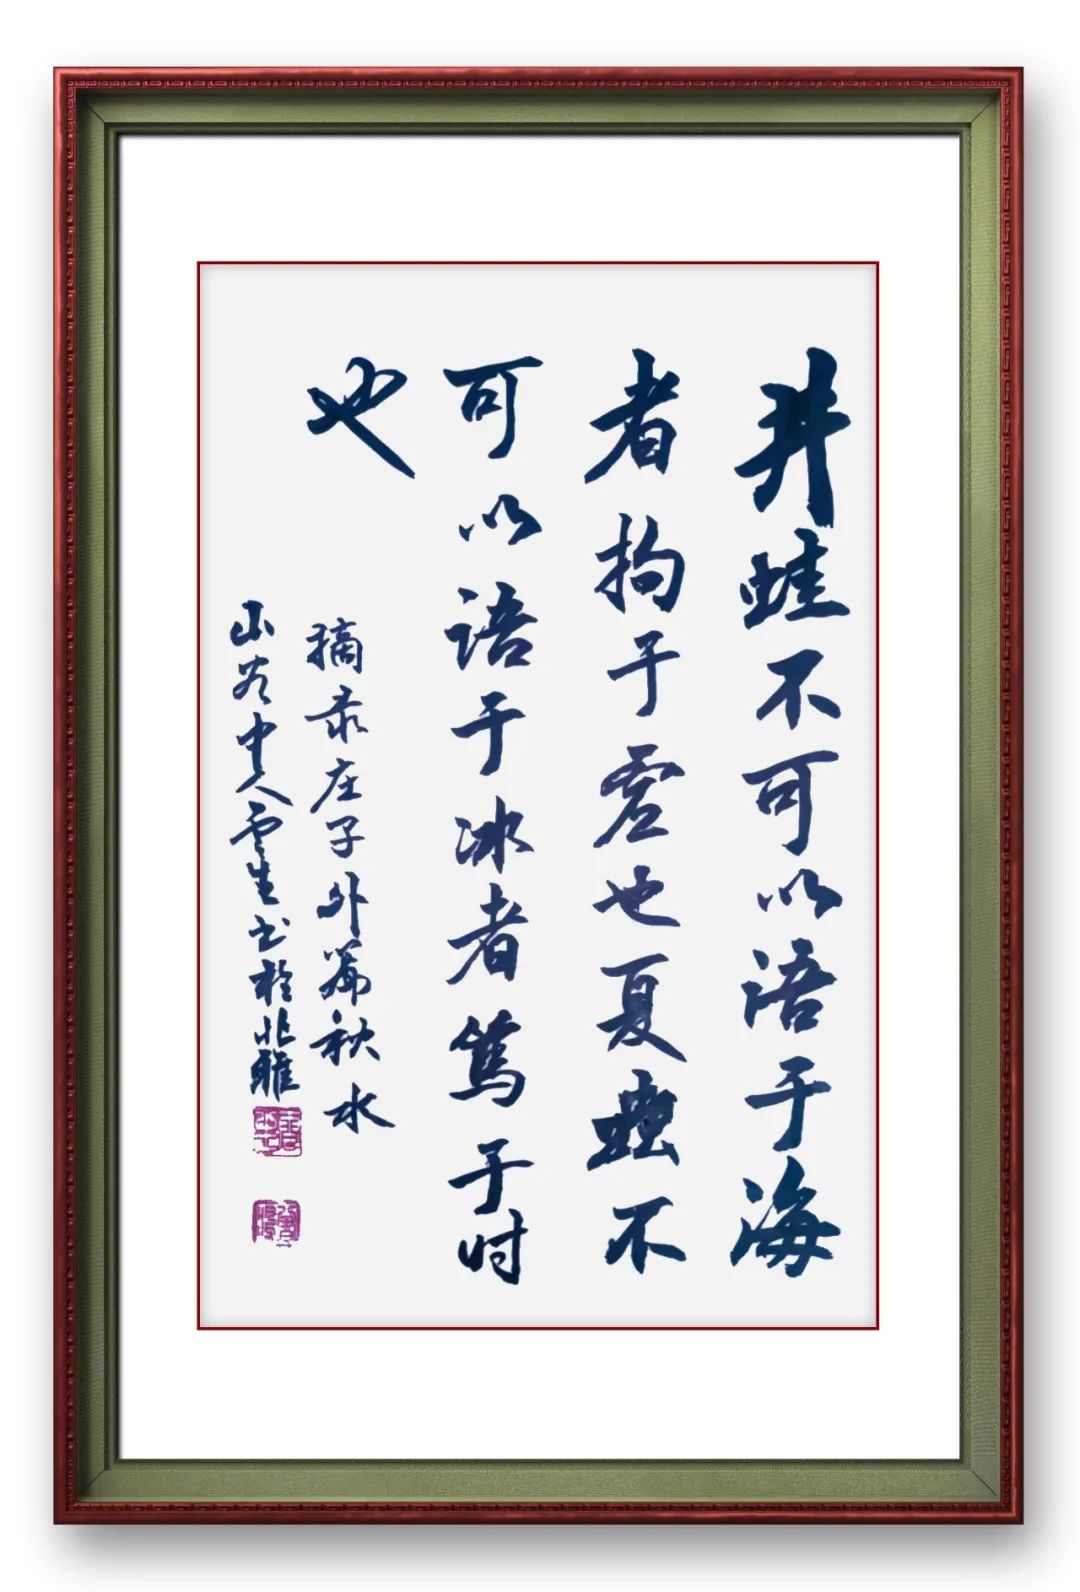 井蛙不可以语于海
者拘于虚也夏虫不
可以语于冰者笃于时
也
摘录庄子外篇秋水
山谷中人云生书於北雎